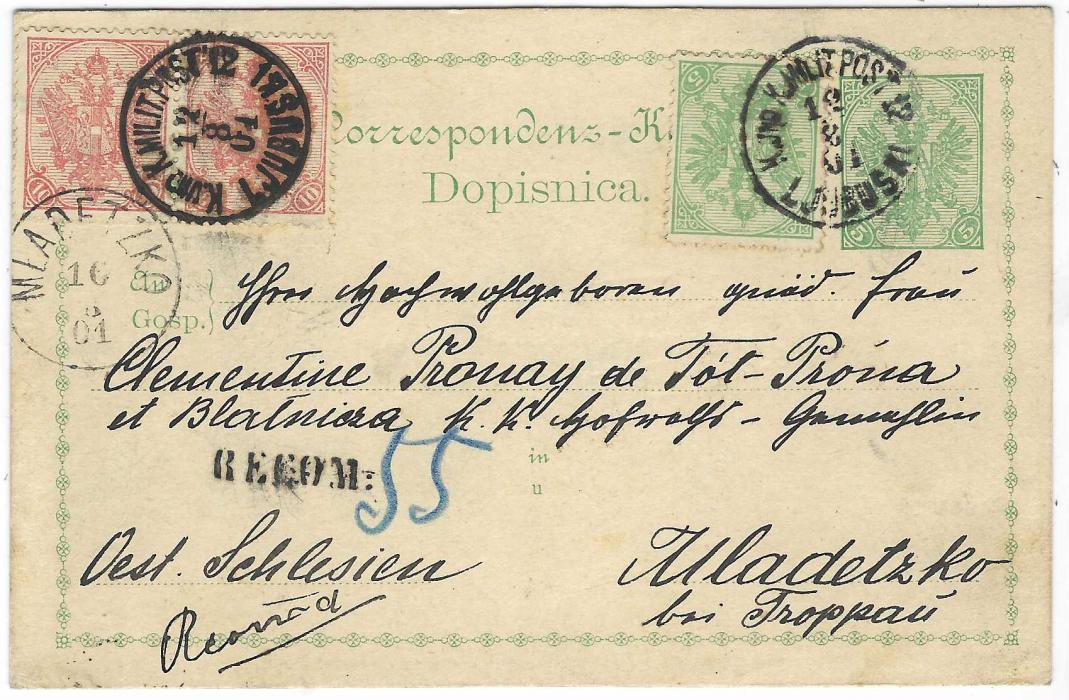 K.UND K.MILIT.POST 12
12
8
01
LJUBUSKI
K.UND K.MILIT.POST 12
12
8
01
LJUBUSKI
10
10
5
5
5
Correspondenz-K
Dopisnica.
MLADETZKO
16
8
01
An
Gosp.}
Ihrer Hochwohlgeboren gnäd. Frau
Clementine Pronay de Tót-Próna
et Blatnicza K. K. Hofraths-Gemahlin
RECOM:
55
in
u
Oest. Schlesien
Mladetzko
bei Troppau